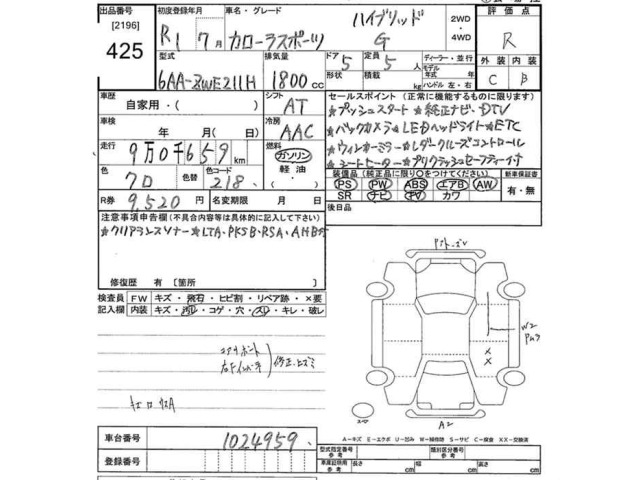 出品番号 初度登録年月 車名・グレード ハイブリッド 2WD 評価点
[2196] R1年 7月 カローラスポーツ G ・4WD R
425 型式 排気量 ドア 5 定員 5人 ディーラー・並行 外装 内装
6AA-ZWE211H 1800cc 形状 積載 kg モデル年式 年 ハンドル 左・右 C B
車歴 自家用・( ) シフト AT セールスポイント(正常に機能するものに限り)
★プッシュスタート★純正ナビ・DTV
車検 年 月( 日) 冷房 AAC ★バックカメラ★LEDヘッドライト★ETC
走行 9万0千659km 燃料 ガソリン 軽油・ ★ウィンカーミラー★レダークルーズコントロール
★シートヒーター★プリクラッシュセーフティーイナ
色 クロ 色替 色コード 218 装備品(純正品に限り○をつけてください) 新車保証書
PS PW ABS エアB AW 有・無
R券 9,520円 名変期限 月 日 SR ナビ TV カワ
後日品
注意事項申告欄(不具合内容等は具体的に記入して下さい)
★クリアランスソナー★LTA・PKSB・RSA・AHB付
修復歴 有【箇所 】
検査員 FW キズ・飛石・ヒビ割・リペア跡・×要
記入欄 内装 キズ・汚レ・コゲ・穴・スレ・キレ・破レ
コアサポート
右Fインパネ 修正・ヒズミ
W2
A2
車台番号 1024959
A-キズ E-エクボ U-凹み W-補修跡 S-サビ C-腐食 XX-交換済
登録番号 型式指定番号 参考 類別区分番号 参考
車庫証明用 参考 長さ cm 幅 cm 高さ cm